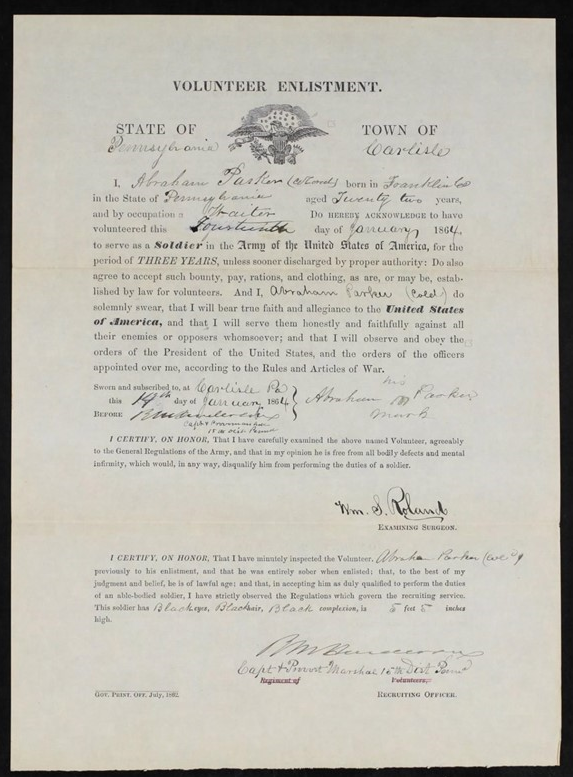 VOLUNTEER ENLISTMENT.
STATE OF TOWN OF
Pennsylvania Carlisle
I, Abraham Parker (colored) born in Franklin Co
in the State of Pennsylvania aged Twenty two years,
and by occupation a Waiter Do HEREBY ACKNOWLEDGE to have
volunteered this Fourteenth day of January, 1864,
to serve as a Soldier in the Army of the United States of America, for the
period of THREE YEARS, unless sooner discharged by proper authority: Do also
agree to accept such bounty, pay, rations, and clothing, as are, or may be, estab-
lished by law for volunteers. And I, Abraham Parker (Cold) do
solemnly swear, that I will bear true faith and allegiance to the United States
of America, and that I will serve them honestly and faithfully against all
their enemies or opposers whomsoever; and that I will observe and obey the
orders of the President of the United States, and the orders of the officers
appointed over me, according to the Rules and Articles of War.
Sworn and subscribed to, at Carlisle Pa
this 14th day of January 1864
BEFORE
Capt & Provmar
15th Dist Penna
his
Abraham Parker
Mark
I CERTIFY, ON HONOR, That I have carefully examined the above named Volunteer, agreeably
to the General Regulations of the Army, and that in my opinion he is free from all bodily defects and mental
infirmity, which would, in any way, disqualify him from performing the duties of a soldier.
Wm. S. Roland
EXAMINING SURGEON.
I CERTIFY, ON HONOR, That I have minutely inspected the Volunteer, Abraham Parker (Cold)
previously to his enlistment, and that he was entirely sober when enlisted; that, to the best of my
judgment and belief, he is of lawful age; and that, in accepting him as duly qualified to perform the duties
of an able-bodied soldier, I have strictly observed the Regulations which govern the recruiting service.
This soldier has Black eyes, Black hair, Black complexion, is 5 feet 5 inches
high.
Capt & Provost Marshal 15th Dist Penna
Regiment of Volunteers,
GOV. PRINT. OFF. July, 1862. RECRUITING OFFICER.